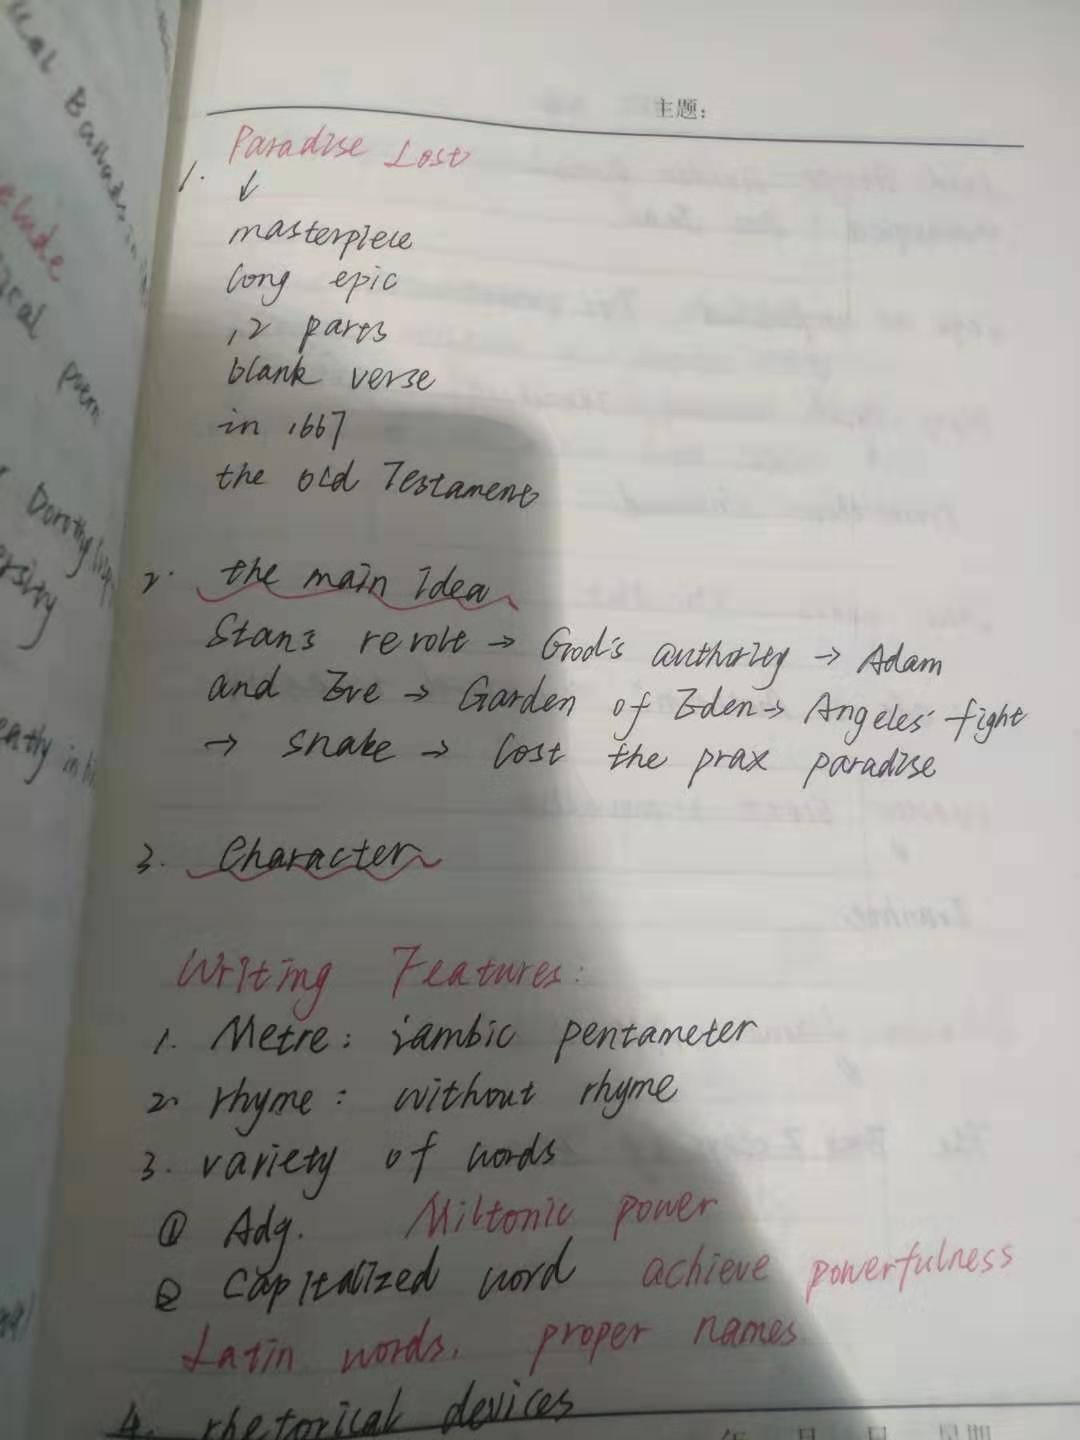 主题:
Paradise Lost
1. ↓
masterpiece
long epic
12 parts
blank verse
in 1667
the old Testament
2. the main idea
Stan's revolt → God's authority → Adam
and Eve → Garden of Eden → Angeles' fight
→ snake → lost the prax paradise
3. Character
Writing Features:
1. Metre: iambic pentameter
2. rhyme: without rhyme
3. variety of words
① Adg. Miltonic power
② Capitalized word achieve powerfulness
Latin words. proper names
4. rhetorical devices
年 月 日 星期